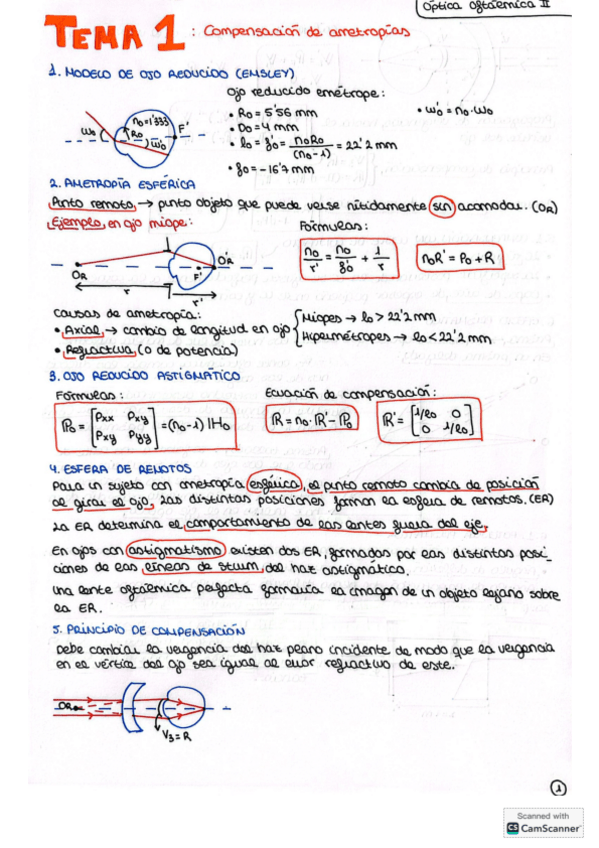 Óptica oftálmica II
TEMA 1: Compensación de ametropías
1. MODELO DE OJO REDUCIDO (EMSLEY)
Ojo reducido emétrope:
• R₀ = 5'56 mm
• D₀ = 4 mm
• l₀ = f₀' = n₀R₀/(n₀-1) = 22'2 mm
• f₀ = -16'7 mm
• ω₀' = n₀·ω₀
ω₀ n₀=1'333 R₀ ω₀' F'
2. AMETROPÍA ESFÉRICA
Punto remoto → punto objeto que puede verse nítidamente sin acomodar. (OR)
Ejemplo, en ojo miope:
Fórmulas:
n₀/r' = n₀/f₀' + 1/r
n₀R' = P₀ + R
OR F' O'R
r r'
Causas de ametropía:
• Axial → cambio de longitud en ojo { Miopes → l₀ > 22'2 mm
Hipermétropes → l₀ < 22'2 mm
• Refractiva (o de potencia)
3. OJO REDUCIDO ASTIGMÁTICO
Fórmulas:
Ecuación de compensación:
P₀ = [Pxx Pxy Pxy Pyy] = (n₀-1) H₀
R = n₀·R' - P₀
R' = [1/l₀ 0 0 1/l₀]
4. ESFERA DE REMOTOS
Para un sujeto con ametropía esférica, el punto remoto cambia de posición
al girar el ojo. Las distintas posiciones, forman la esfera de remotos. (ER)
La ER determina el comportamiento de las lentes fuera del eje.
En ojos con astigmatismo existen dos ER, formadas por las distintas posi-
ciones de las líneas de Sturm, del haz astigmático.
Una lente oftálmica perfecta formaría la imagen de un objeto lejano sobre
la ER.
5. PRINCIPIO DE COMPENSACIÓN
Debe cambiar la vergencia del haz plano incidente de modo que la vergencia
en el vértice del ojo sea igual al error refractivo de este.
V₃ = R
1
Scanned with
CS CamScanner